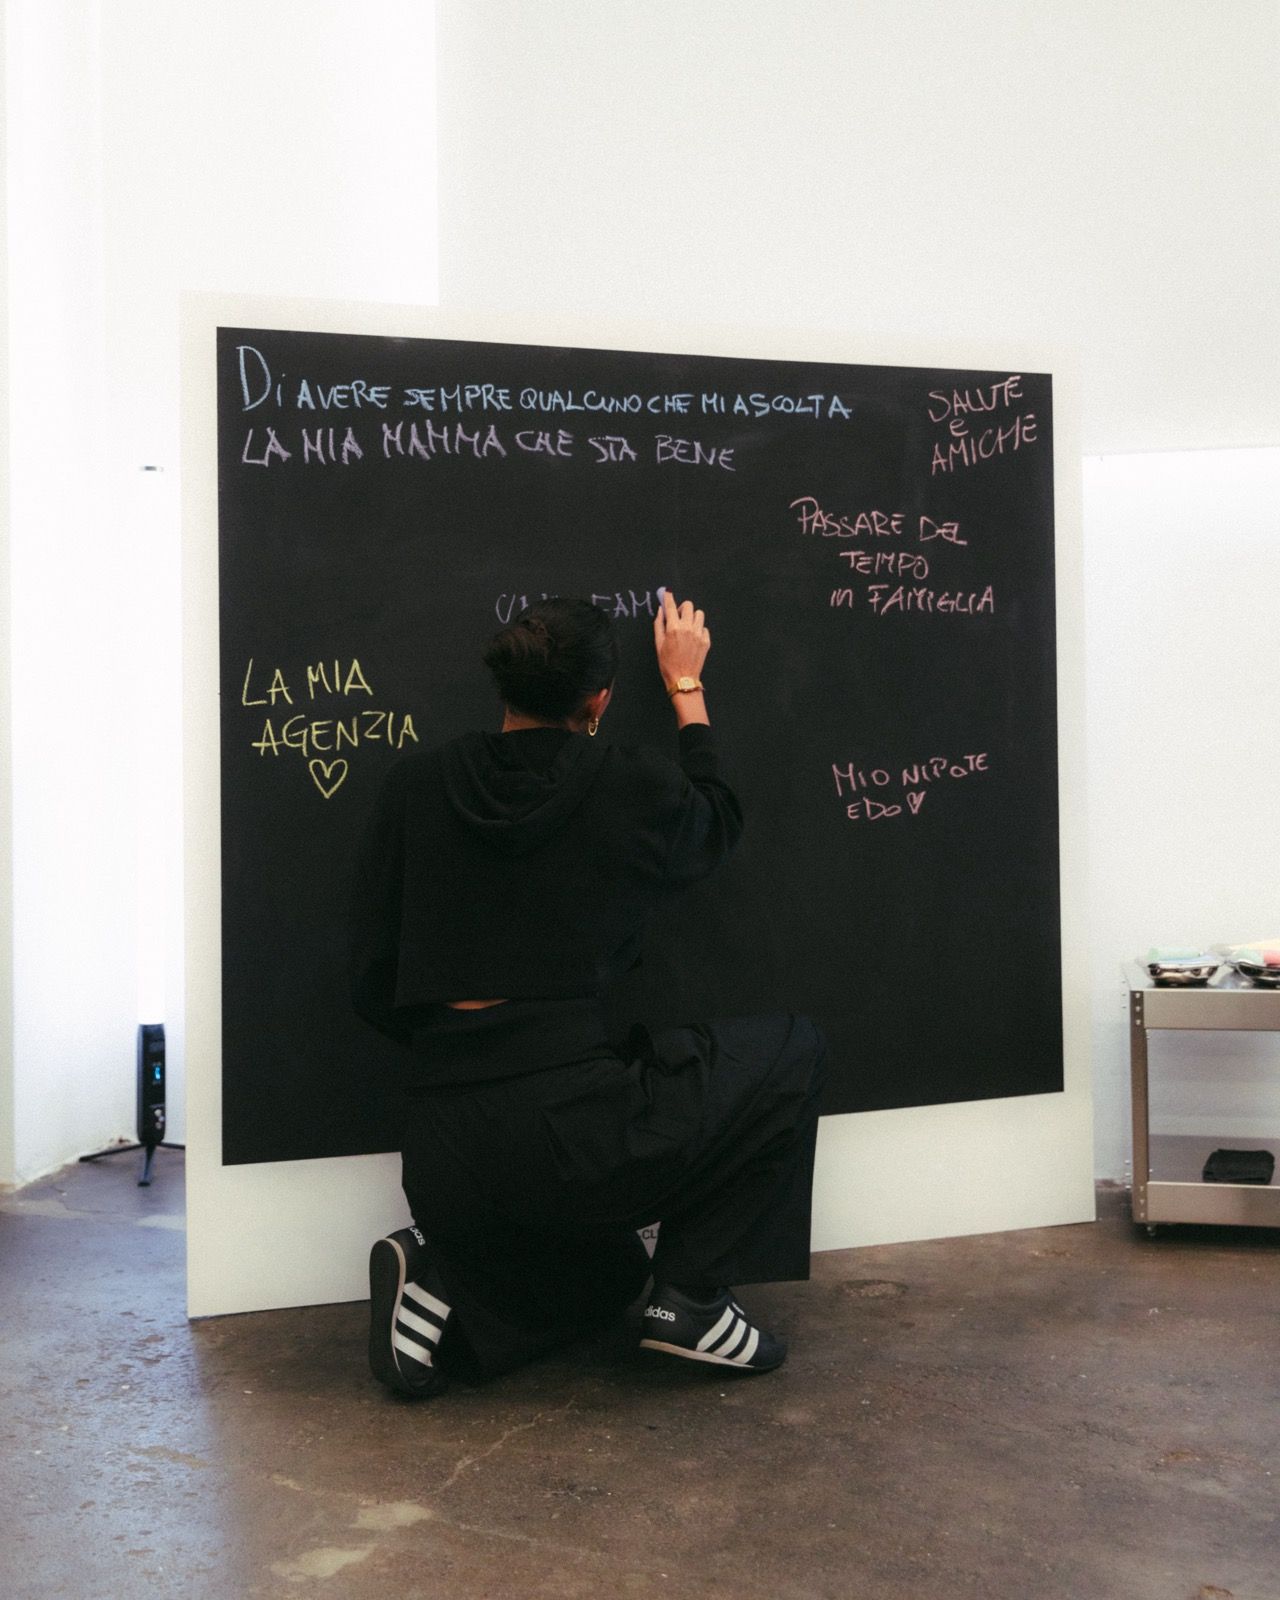 Di AVERE SEMPRE QUALCUNO CHE MI ASCOLTA
LA MIA MAMMA CHE STA BENE
SALUTE
e
AMICHE
PASSARE DEL
TEMPO
in FAMIGLIA
FAM
LA MIA
AGENZIA
♡
MIO NIPOTE
EDO ♡
adidas